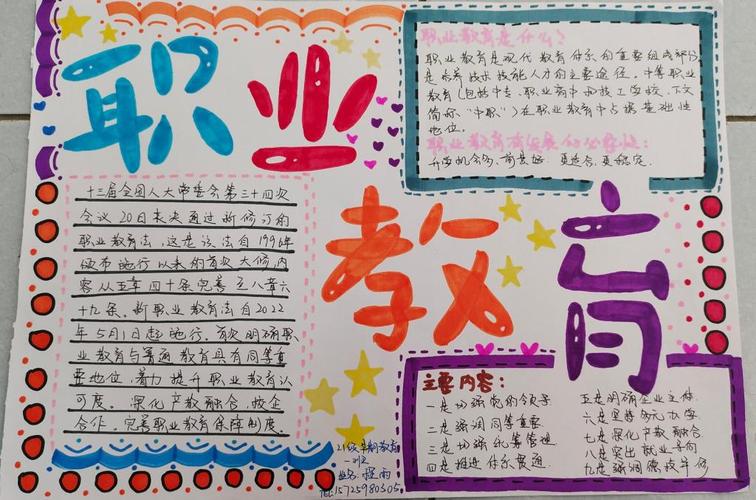 职业
教育
职业教育是什么?
职业教育是现代教育体系的重要组成部分
是培育技术技能人才的主要途径。中等职业
教育(包括中专、职业高中和技工学校,下文
简称"中职")在职业教育中占据基础性
地位。
职业教育有发展的必要性:
升学机会多,前景好,更适合,更稳定。
十三届全国人大常委会第三十四次
会议20日表决通过新修订的
职业教育法,这是该法自1996年
颁布施行以来的首次大修,内
容从五章四十条完善至八章六
十九条。新职业教育法自2022
年5月1日起施行。首次明确职
业教育与普通教育具有同等重
要地位,着力提升职业教育认
可度。深化产教融合、校企
合作,完善职业教育保障制度。
主要内容:
一是加强党的领导
二是强调同等重要
三是加强统筹管理
四是推进体系贯通
五是明确企业主体
六是坚持多元办学
七是深化产教融合
八是突出就业导向
九是强调德技并修
21级 教育
一班
15725980505